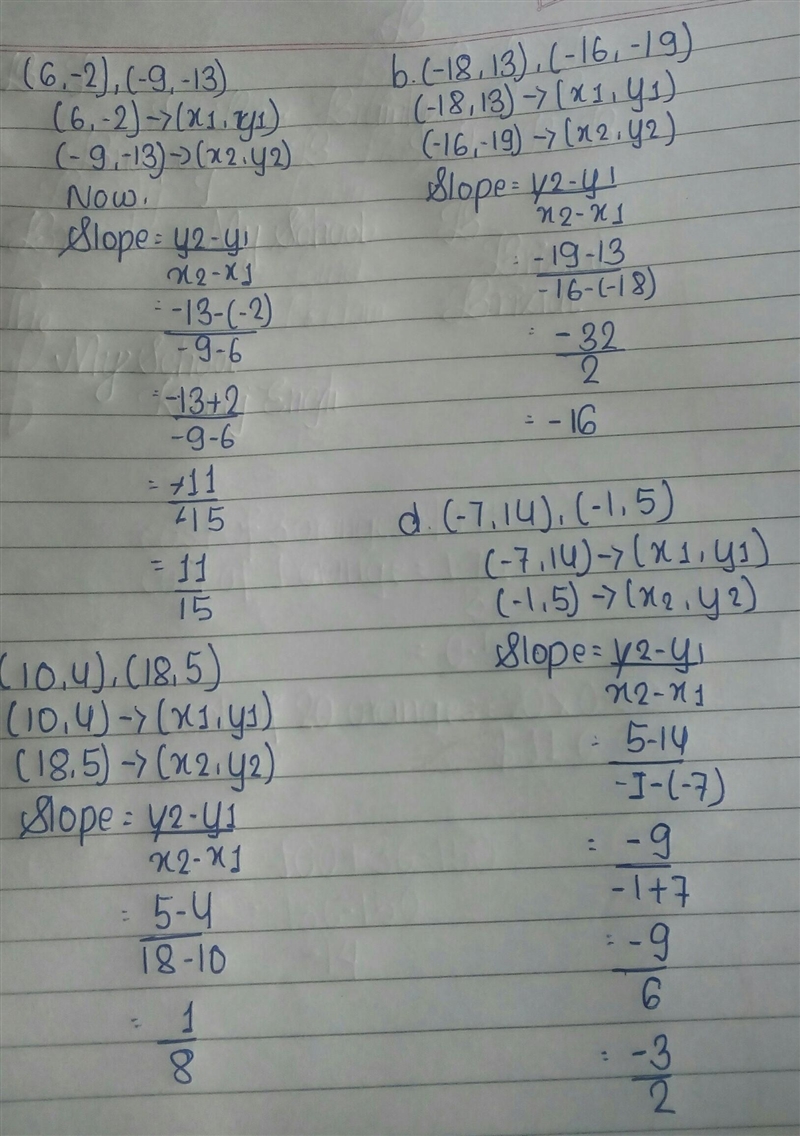 (6,-2),(-9,-13)
(6,-2)→(x1,y1)
(-9,-13)→(x2,y2)
Now,
Slope = y2-y1
x2-x1
= -13-(-2)
-9-6
= -13+2
-9-6
= -11
-15
= 11
15
(10,4),(18,5)
(10,4)→(x1,y1)
(18,5)→(x2,y2)
Slope = y2-y1
x2-x1
= 5-4
18-10
= 1
8
b. (-18,13), (-16,-19)
(-18,13)→(x1,y1)
(-16,-19)→(x2,y2)
Slope = y2-y1
x2-x1
= -19-13
-16-(-18)
= -32
2
= -16
d. (-7,14), (-1,5)
(-7,14)→(x1,y1)
(-1,5)→(x2,y2)
Slope = y2-y1
x2-x1
= 5-14
-1-(-7)
= -9
-1+7
= -9
6
= -3
2